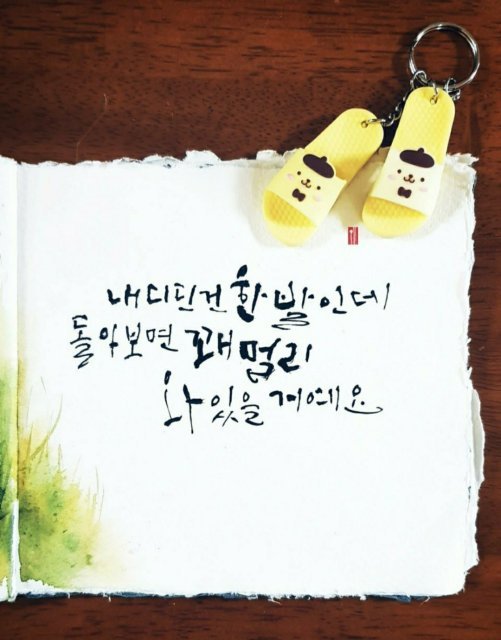 내디딘건 한 발인데
돌아보면 꽤 멀리
와 있을 거예요